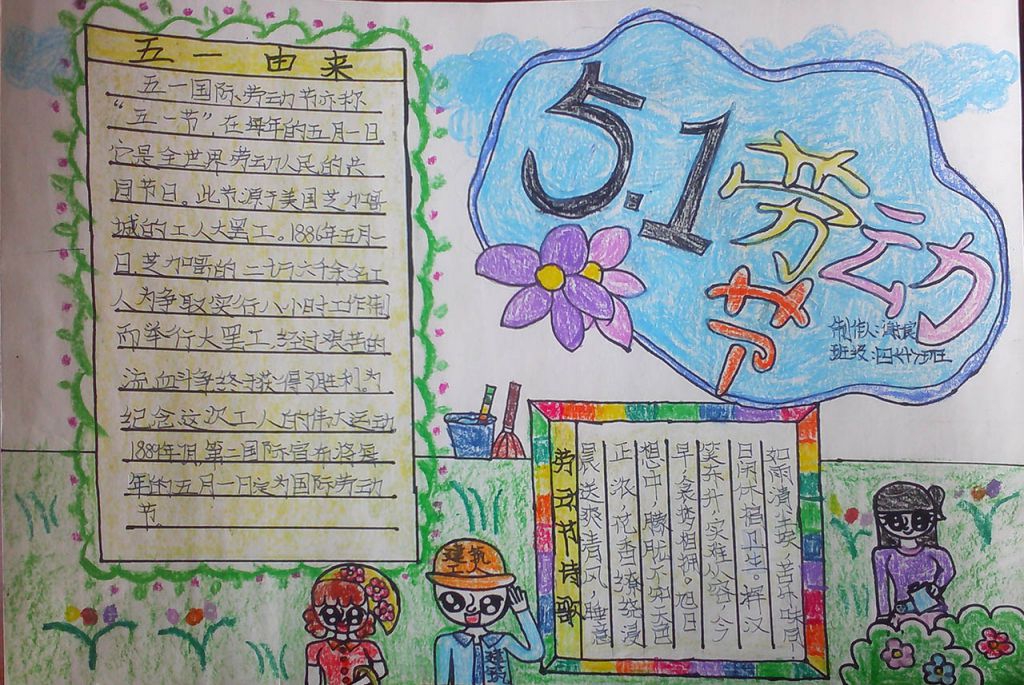 五一由来
五一国际劳动节亦称
“五一节”在每年的五月一日
它是全世界劳动人民的共
同节日。此节源于美国芝加哥
城的工人大罢工。1886年五月一
日,芝加哥的二十一万六千余名工
人为争取实行八小时工作制
而举行大罢工,经过艰苦的
流血斗争终于获得了胜利为
纪念这次工人的伟大运动
1889年7月,第二国际宣布将每
年的五月一日定为国际劳动
节。
5.1劳动
节
制作人:
班级:四
劳动节诗歌
晨送爽清风,睡意
正浓,花香缭绕浸
想中,朦胧不知天色
早,衾梦相拥。旭日
笑东升,实难从容,今
日闲休搞卫生。挥汗
如雨清
建筑
建筑